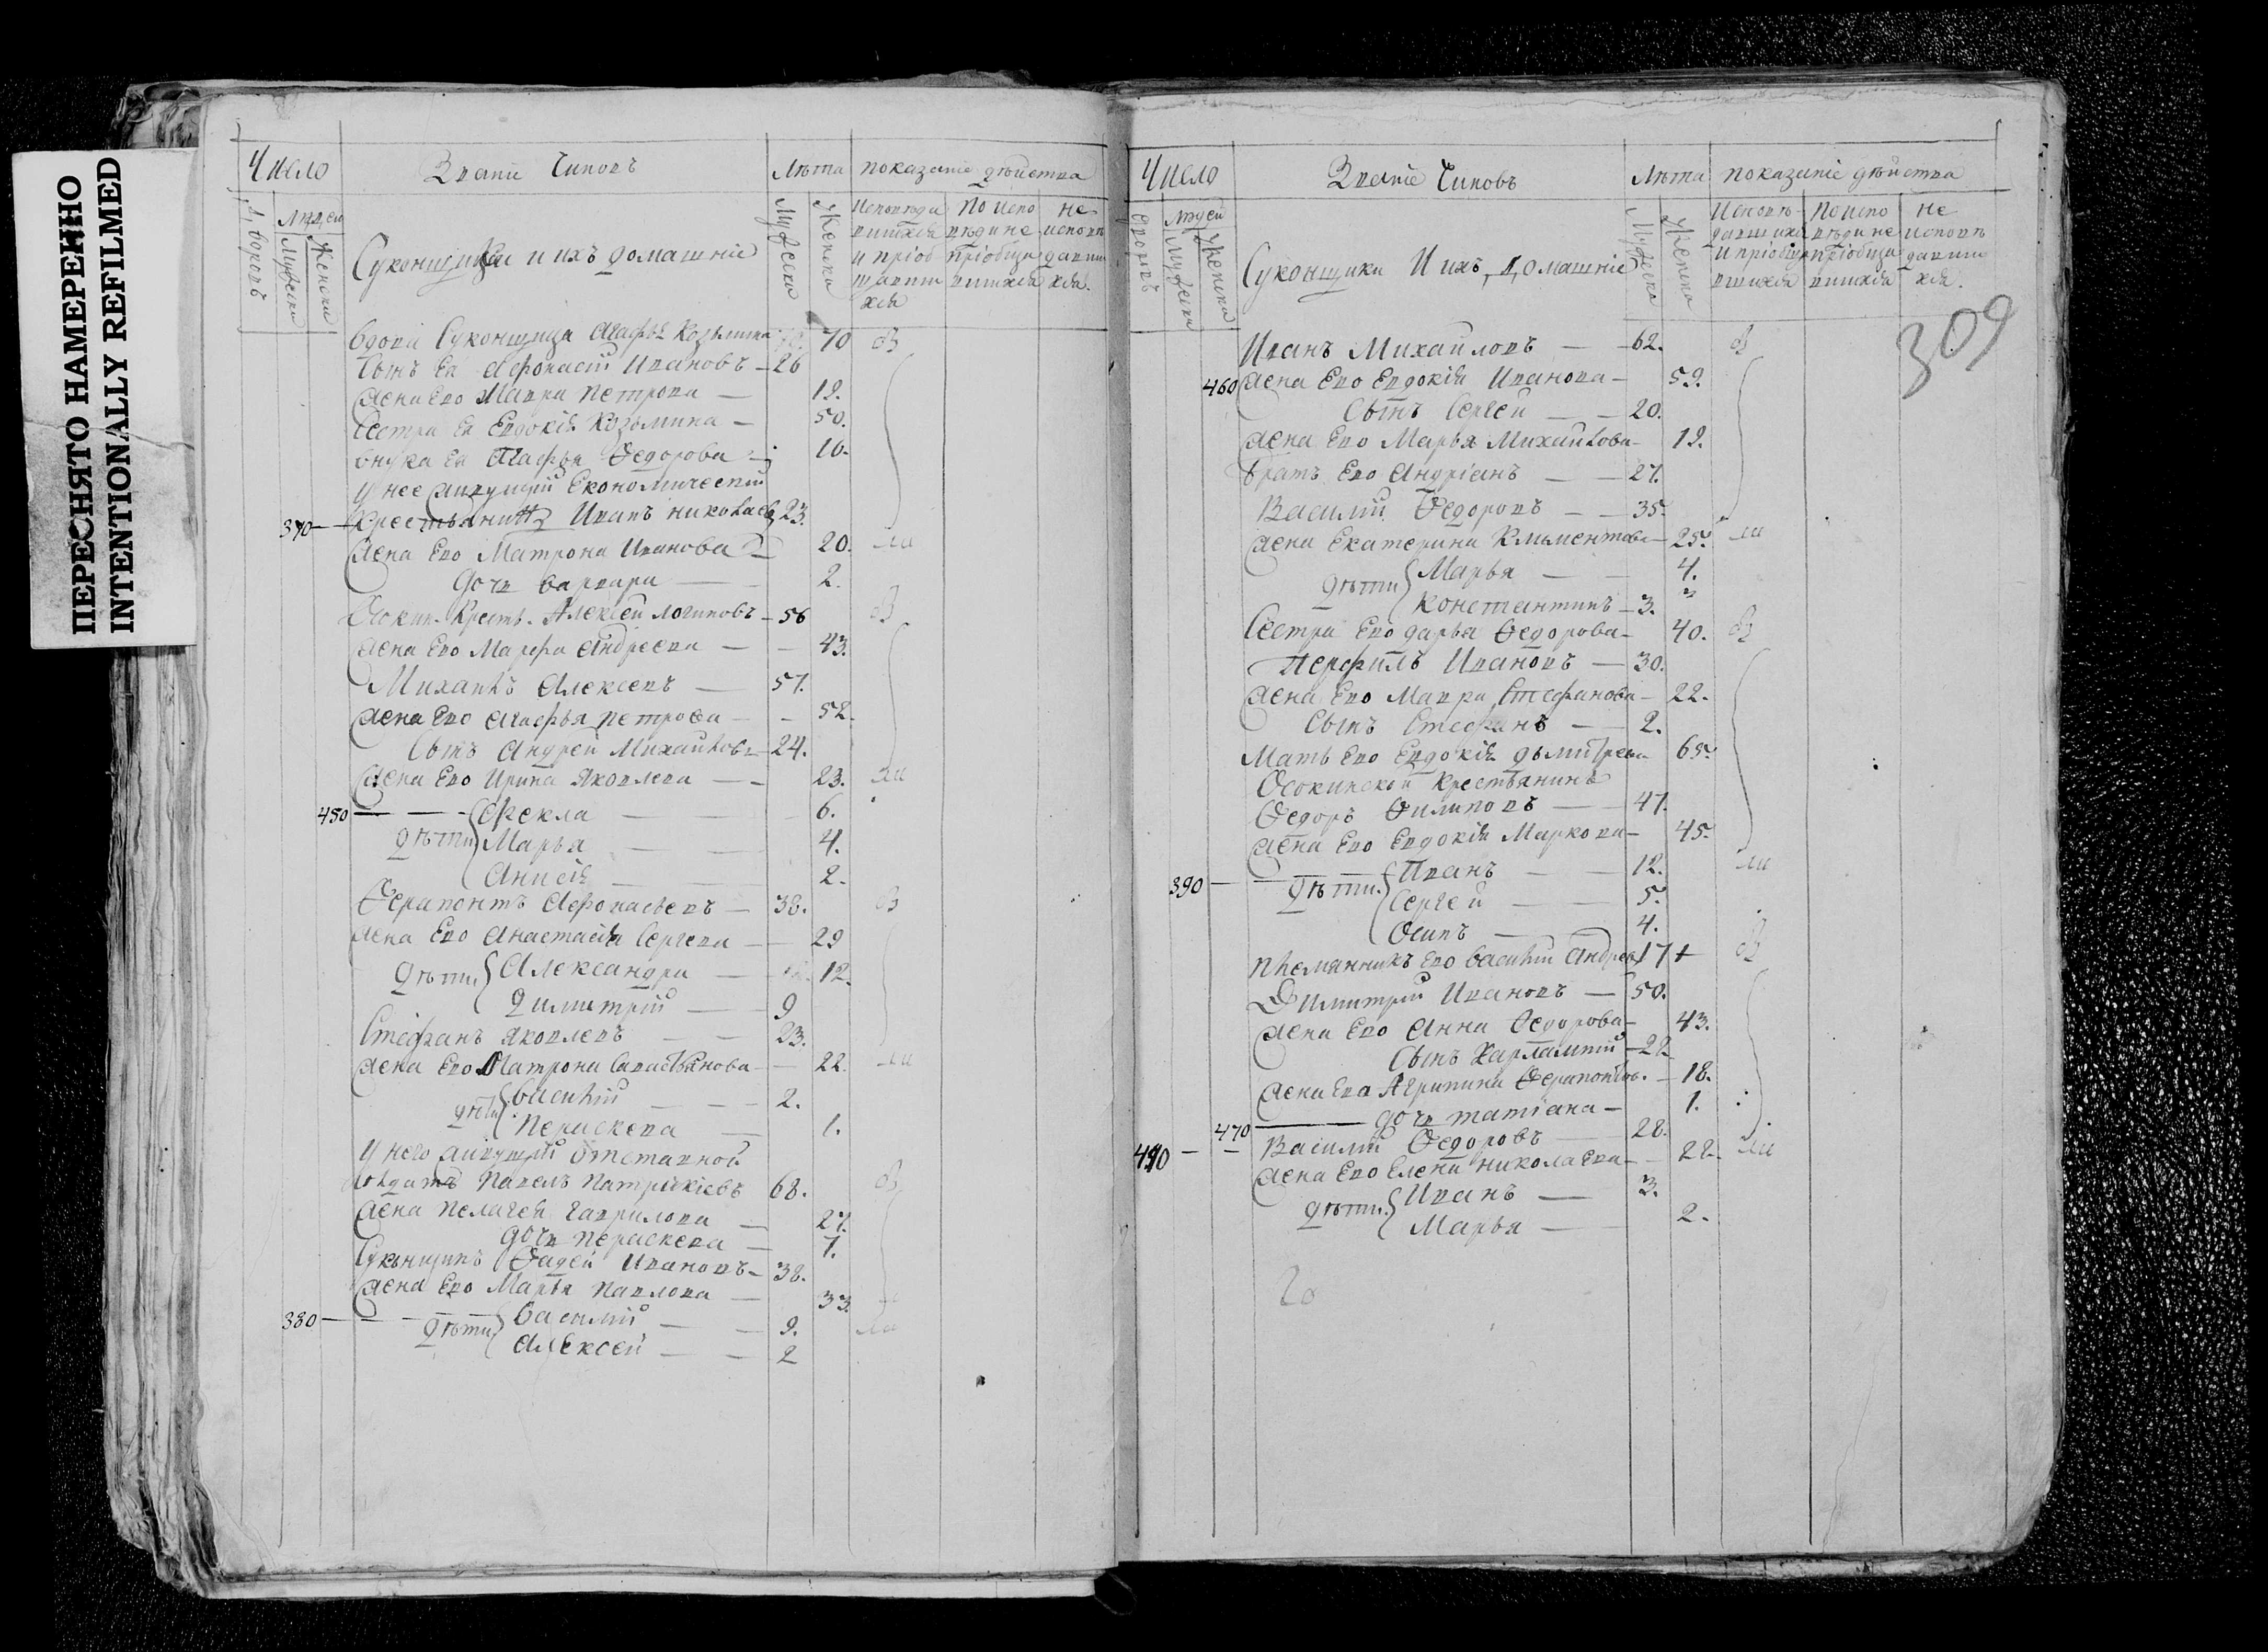 ПЕРЕСНЯТО НАМЕРЕННО
INTENTIONALLY REFILMED
Число
Званiе Чиновъ
Лѣта
показанiе дѣйства
Дворовъ
Людей
Мужеска
Женска
Суконщики и ихъ домашнiе
Мужеска
Женска
Исповѣда
вшихся
и прiоб
щавши
хся
По испо
вѣди не
прiобща
вшихся
не
исповѣ
давши
хся.
Вдова Суконщица Агафья Козьмина 70
Сынъ Ея Афонасiй Ивановъ — 26
Жена Ево Мавра Петрова — 19.
Сестра Ея Евдокiя Козьмина — 50.
внука Ея Агафья Ѳедорова 10.
У нее живущiй Економическiй
370 — Крестьянинъ Иванъ Николаевъ 23.
Жена Ево Матрона Иванова — 20. —
Дочь Варвара — 2.
Осокин. Крестъ. Алексѣй Логиновъ — 56
Жена Ево Марфа Андреева — 43.
Михайлъ Алексеевъ — 57.
Жена Ево Агафья Петрова — 52.
Сынъ Андрей Михайловъ — 24.
Жена Ево Ирина Яковлева — 23.
450 — Фекла — 6.
Дѣти Марья — 4.
Анисiя — 2.
Ѳерапонтъ Афонасьевъ — 38.
Жена Ево Анастасiя Сергеева — 29
Дѣти Александра — 12.
Димитрiй — 9
Стефанъ Яковлевъ — 23.
Жена Ево Матрона Савастьянова — 22.
дѣти Василiй — 2.
Пераскева — 1.
У него живущiй Отставной
солдатъ Павелъ Патрикiевъ 68.
Жена Пелагея Гаврилова — 27.
дочь Пераскева — 1.
Суконщикъ Ѳадей Ивановъ — 38.
Жена Ево Марья Павлова — 33.
380 — дѣти Василiй — 9.
Алексей — 2
Число
Званiе Чиновъ
Лѣта
показанiе дѣйства
дворовъ
людей
Мужеска
Женска
Суконщики И ихъ Домашнiе
Мужеска
Женска
Исповѣ-
давшихся
и прiобща
вшихся
По испо
вѣди не
прiобща
вшихся
не
исповѣ
давши
хся.
309
Иванъ Михайловъ — 62.
460 Жена Ево Евдокiя Иванова — 59.
Сынъ Сергей — 20.
Жена Ево Марья Михайлова — 19.
Братъ Ево Андрiанъ — 27.
Василiй Ѳедоровъ — 35.
Жена Екатерина Климентова — 25.
дѣти Марья — 4.
Константинъ — 3.
Сестра Ево Дарья Ѳедорова — 40.
Перфилъ Ивановъ — 30.
Жена Ево Мавра Стефанова — 22.
Сынъ Стефанъ — 2.
Мать Ево Евдокiя Дьмитреева 65.
Осокинской Крестьянинъ
Ѳедоръ Филиповъ — 47.
Жена Ево Евдокiя Маркова — 45.
390 — дѣти. Иванъ — 12.
Сергей — 5.
Осипъ — 4.
Племянникъ Ево Василiй Андреевъ 17 +
Димитрiй Ивановъ — 50.
Жена Ево Анна Ѳедорова — 43.
Сынъ Харлампiй — 22
Жена Ево Агрипина Ѳерапонтов. — 18.
470 — дочь Татiана — 1.
490 — Василiй Ѳедоровъ — 28.
Жена Ево Елена Николаева — 22.
дѣти. Иванъ — 3.
Марья — 2.